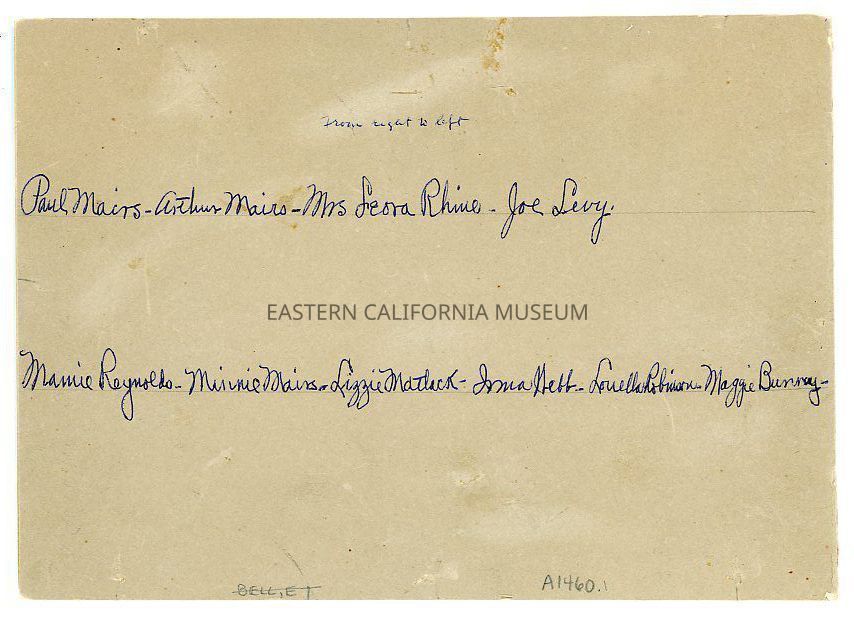 From right to left
Paul Mairs - Arthur Mairs - Mrs Leora Rhine - Joe Levy.
EASTERN CALIFORNIA MUSEUM
Mamie Reynolds - Minnie Mairs - Lizzie Matlack - Irma Webb - Louella Robinson - Maggie -
BELL, ET
A1460.1